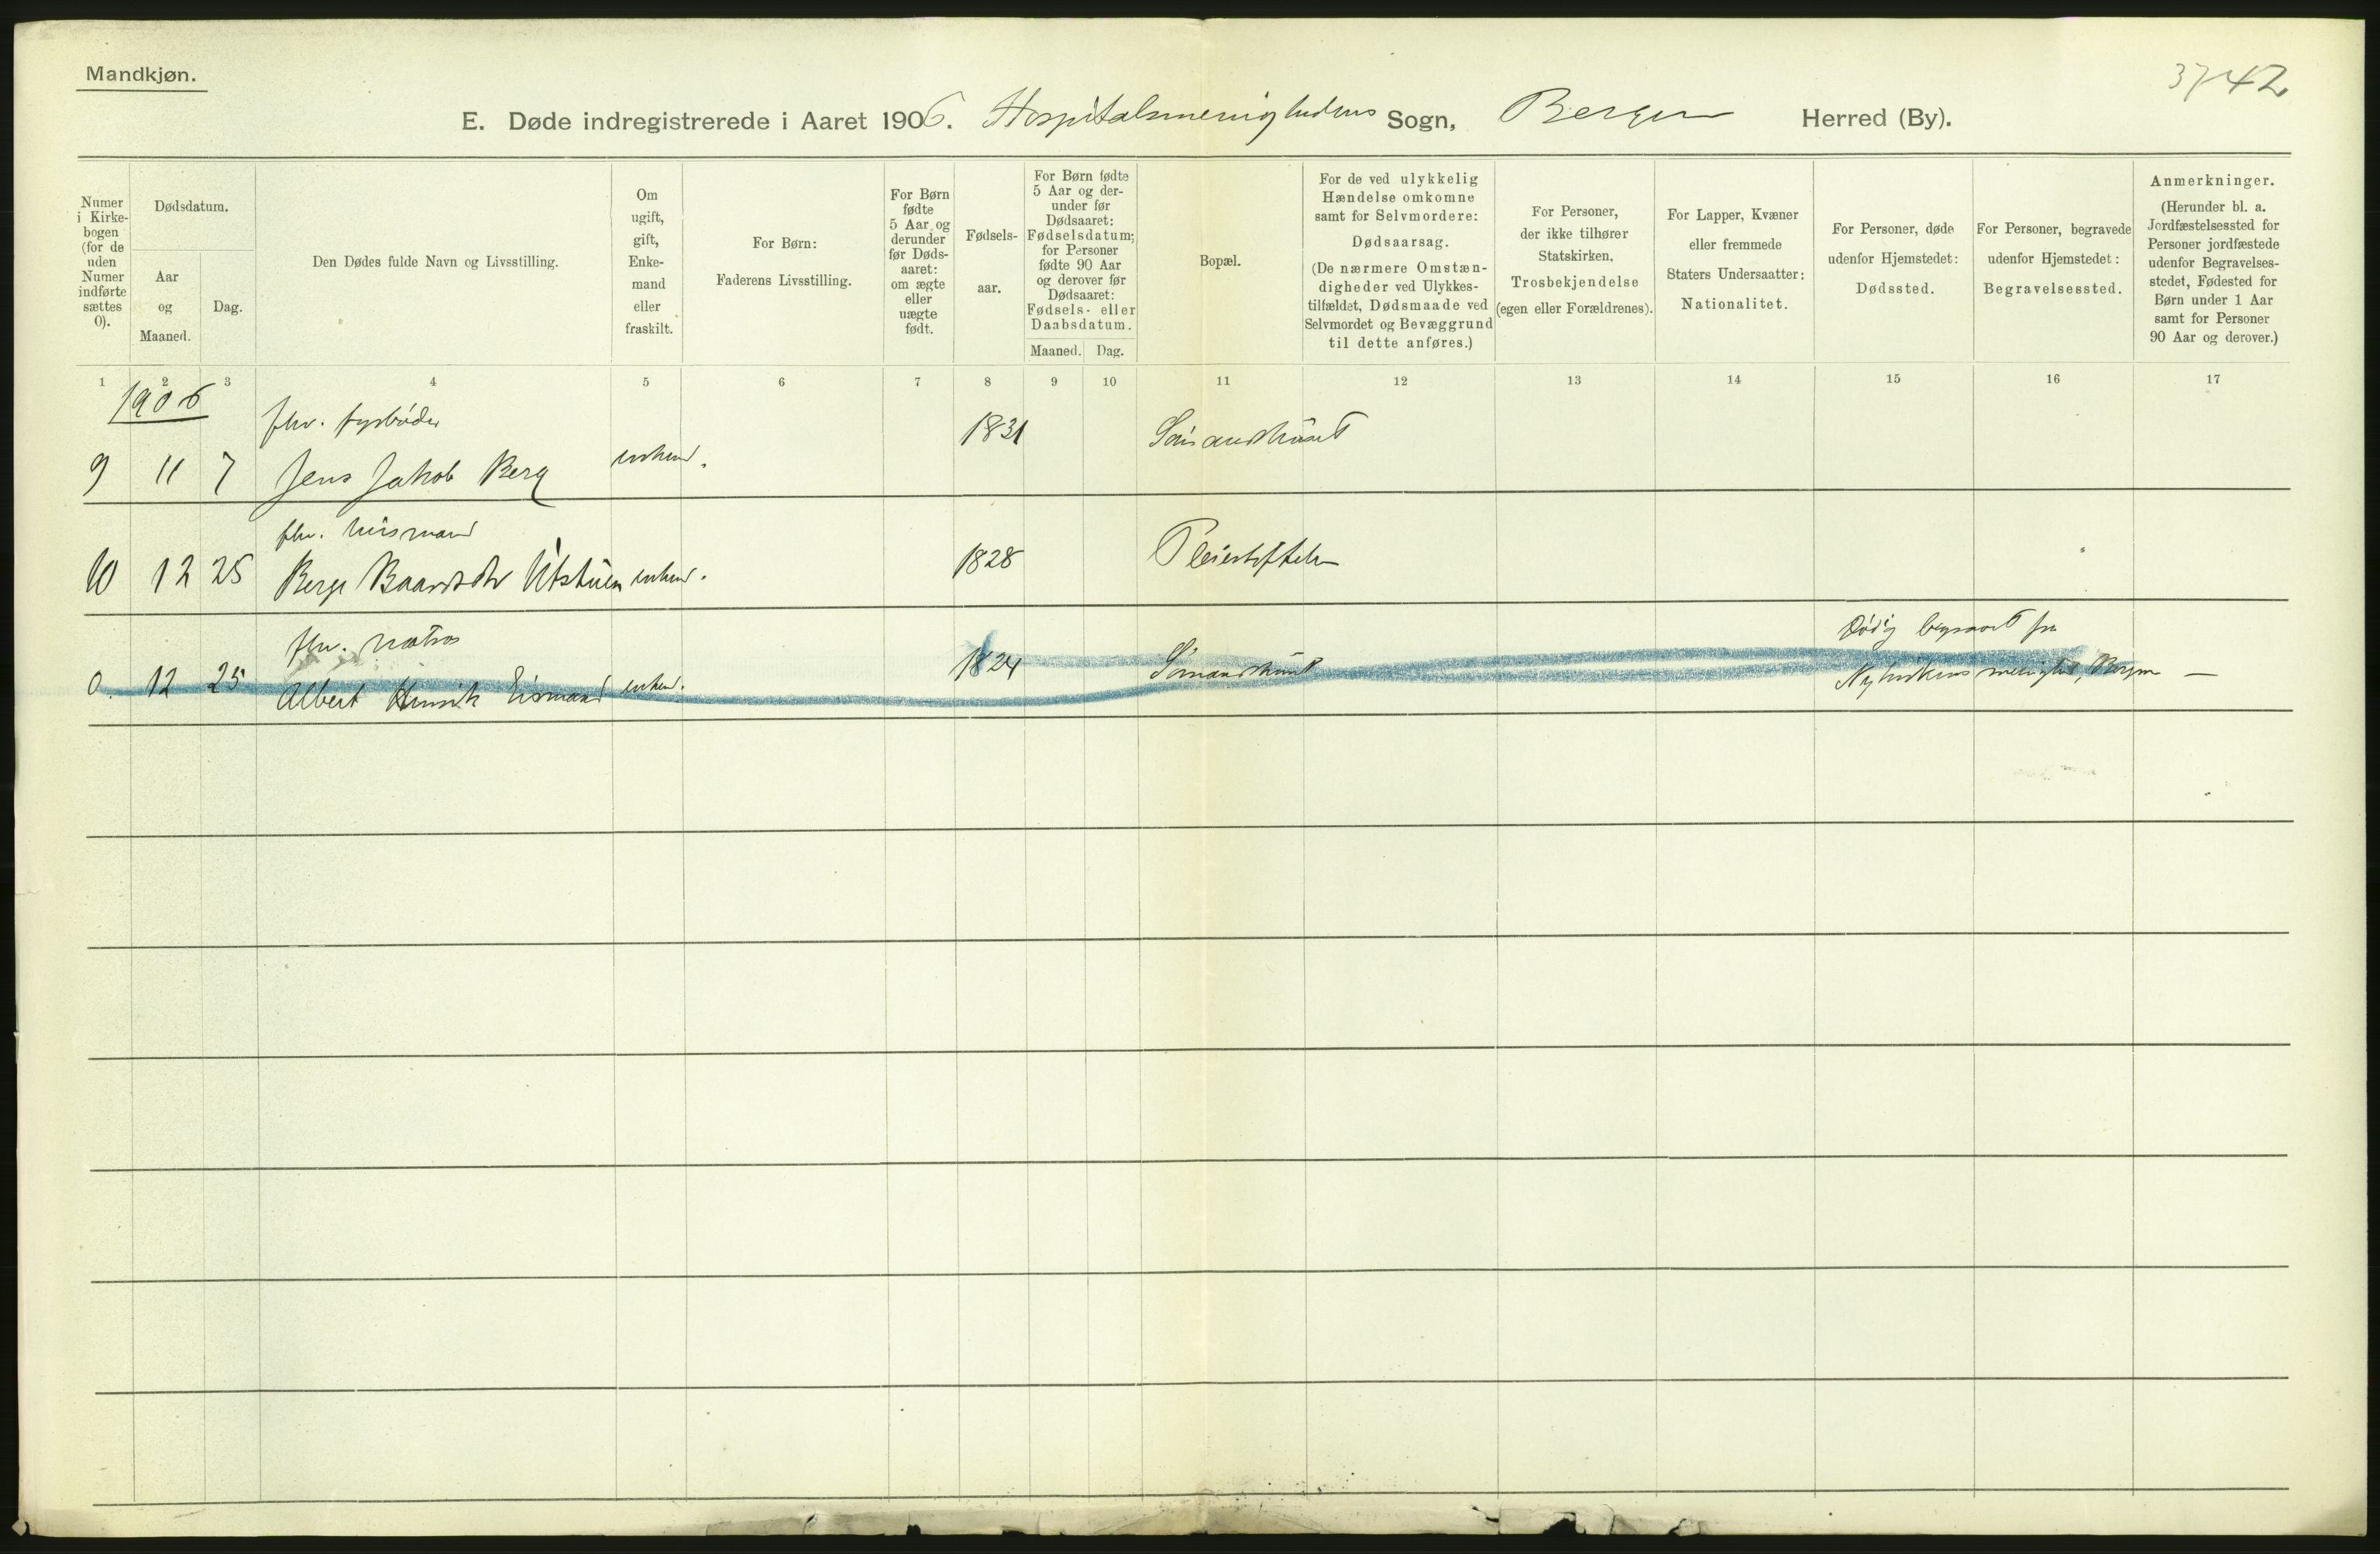 Mandkjøn.
3742
E. Døde indregistrerede i Aaret 1906. Hospitalsmenighedens Sogn, Bergen Herred (By).
Numer i Kirke-bogen (for de uden Numer indførte sættes 0).
Dødsdatum.
Aar og Maaned.
Dag.
Den Dødes fulde Navn og Livsstilling.
Om ugift, gift, Enke-mand eller fraskilt.
For Børn: Faderens Livsstilling.
For Børn fødte 5 Aar og derunder før Døds-aaret: om ægte eller uægte født.
Fødsels-aar.
For Børn fødte 5 Aar og der-under før Dødsaaret: Fødselsdatum; for Personer fødte 90 Aar og derover før Dødsaaret: Fødsels- eller Daabsdatum.
Maaned. Dag.
Bopæl.
For de ved ulykkelig Hændelse omkomne samt for Selvmordere: Dødsaarsag. (De nærmere Omstæn-digheder ved Ulykkes-tilfældet, Dødsmaade ved Selvmordet og Bevæggrund til dette anføres.)
For Personer, der ikke tilhører Statskirken, Trosbekjendelse (egen eller Forældrenes).
For Lapper, Kvæner eller fremmede Staters Undersaatter: Nationalitet.
For Personer, døde udenfor Hjemstedet: Dødssted.
For Personer, begravede udenfor Hjemstedet: Begravelsessted.
Anmerkninger. (Herunder bl. a. Jordfæstelsessted for Personer jordfæstede udenfor Begravelses-stedet, Fødested for Børn under 1 Aar samt for Personer 90 Aar og derover.)
1 2 3 4 5 6 7 8 9 10 11 12 13 14 15 16 17
1906
fhv. fyrbøder
9 11 7 Jens Jakob Berg enkem. 1831
fhv. husmand
10 12 25 Berge Baardsen Utstuen enkem. 1828 Pleiestiftelsen
fhv. matros
0. 12 25 Albert Henrik enkem. 1824 Sømandshuset
Død og begravet fra
Nykirkens menighed, Bergen —